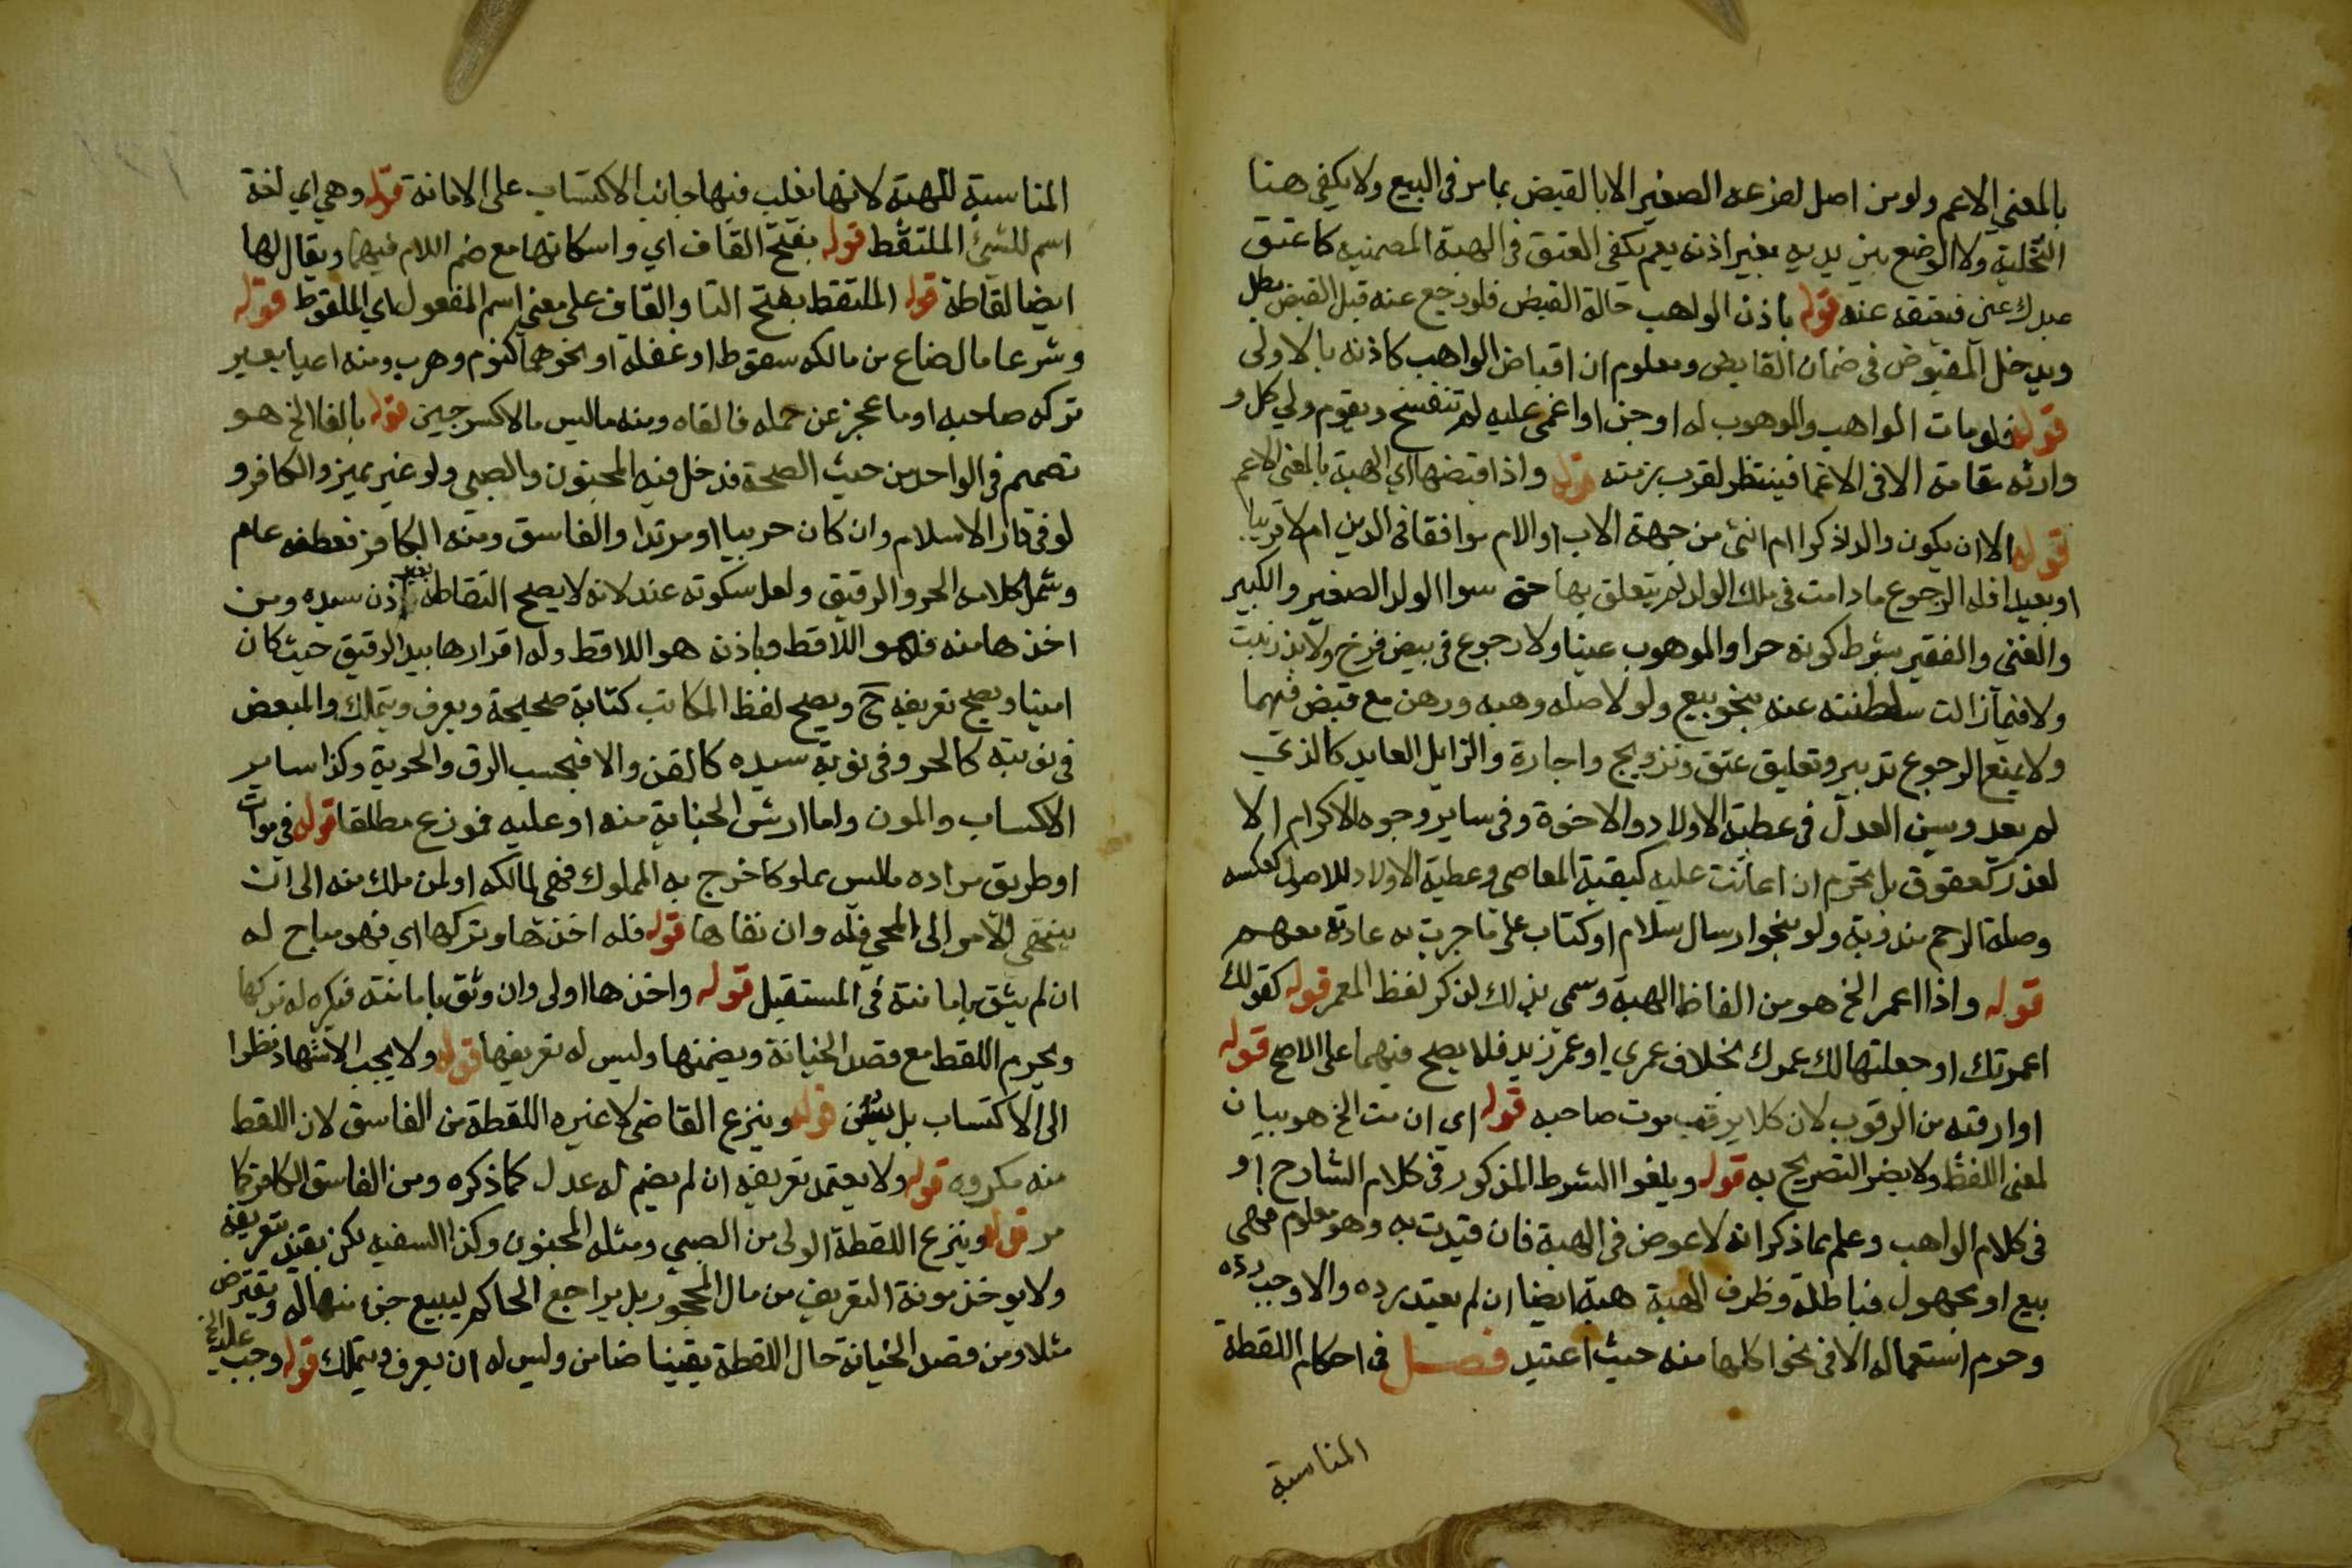 بالمعني الاعم ولو من اصل لفرعه الصغير الا بالقبض بما مر في البيع ولا يكفي هنا
التخلية ولا الوضع بين يديه بغير اذنه نعم يكفي العتق في الهبة الضمنيه كاعتق
عبدك عني فيعتقه عنه قوله باذن الواهب حالة القبض فلو رجع عنه قبل القبض بطل
ويدخل المقبوض في ضمان القابض ومعلوم ان اقباض الواهب كاذنه بالاولي
قوله فلو مات الواهب والموهوب له او جن او اغمي عليه لم تنفسخ ويقوم ولي كل و
وارثه مقامه الا في الاغما فينتظر لقرب زمنه قوله واذا قبضها اي الهبة بالمعني الاعم
قوله الا ان يكون والدا ذكرا ام انثي من جهة الاب او الام موافقا في الدين ام لا قريبا
او بعيدا فله الرجوع ما دامت في ملك الولد لم يتعلق بها حق سوا الولد الصغير والكبير
والغني والفقير بشرط كونه حرا والموهوب عينا ولا رجوع في بيض فرخ ولا بذر نبت
ولا فيما زالت سلطنته عنه بنحو بيع ولو لاصله وهبه ورهن مع قبض فيهما
ولا يمنع الرجوع تدبير وتعليق عتق وتزويج واجارة والزايل العايد كالذي
لم يعد وسن العدل في عطية الاولاد والاخوة وفي ساير وجوه الاكرام الا
لعذر كعقوق بل يحرم ان اعانت عليه كبقية المعاصي وعطية الاولاد للاصول كعكسه
وصلة الرحم مندوبة ولو بنحو ارسال سلام او كتاب علي ما جرت به عادته معهم
قوله واذا اعمر الخ هو من الفاظ الهبة وسمي بذلك لذكر لفظ المعمر قوله كقولك
اعمرتك او جعلتها لك عمرك بخلاف عمري او عمر زيد فلا يصح فيهما علي الاصح قوله
او ارقبه من الرقوب لان كلا يرقب موت صاحبه قوله اي ان مت الخ هو بيان
لمعني اللفظ ولا يضر التصريح به قوله ويلغوا الشرط المذكور في كلام الشارح او
في كلام الواهب وعلم بما ذكر انه لا عوض في الهبة فان قيدت به وهو معلوم فهي
بيع او مجهول فباطلة وظرف الهبة هبة ايضا ان لم يعتد رده والا وجب رده
وحرم استعماله الا في نحو اكلها منه حيث اعتيد فصل في احكام اللقطة
المناسبة
المناسبة للهبة لانها يغلب فيها جانب الاكتساب على الامانة قوله وهي اي لغة
اسم للشيء الملتقط قوله بفتح القاف اي واسكانها مع ضم اللام فيهما ويقال لها
ايضا لقاطة قوله الملتقط بفتح التا والقاف علي معني اسم المفعول اي الملقوط قوله
وشرعا ما ل ضاع من مالكه بسقوط او غفلة او نحوهما كنوم وهرب ومنه اعيا بعير
تركه صاحبه او ما عجز عن حمله فالقاه ومنه ما ليس مالا كسرجين قوله بالغا الخ هو
تعميم في الواحد من حيث الصحة فدخل فيه المجنون والصبي ولو غير مميز والكافر و
لو في دار الاسلام وان كان حربيا او مرتدا والفاسق ومنه الكافر فعطفه عام
وشمل كلامه الحر والرقيق ولعل سكوته عنه لانه لا يصح التقاطه بغير اذن سيده ومن
اخذها منه فهو اللاقط وباذنه هو اللاقط وله اقرارها بيد الرقيق حيث كان
امينا ويصح تعريفه ح ويصح لفظ المكاتب كتابة صحيحة ويعرف ويتملك والمبعض
في نوبته كالحر وفي نوبة سيده كالقن والا فبحسب الرق والحرية وكذا ساير
الاكساب والمون واما ارش الجناية منه او عليه فموزع مطلقا قوله في موات
او طريق مراده ما ليس مملوكا خرج به المملوك فهي لمالكه او لمن ملك منه الي ان
ينتهي الامر الي المحي فله وان نفاها قوله فله اخذها وتركها اي فهو مباح له
ان لم يثق بامانته في المستقبل قوله واخذها اولي وان وثق بامانته فيكره له تركها
ويحرم اللقط مع قصد الخيانة ويضمنها وليس له تعريفها قوله ولا يجب الاشهاد نظرا
الي الاكتساب بل يسن قوله وينزع القاضي لا غيره اللقطة من الفاسق لان اللقط
منه مكروه قوله ولا يعتمد تعريفه ان لم يضم له عدل كما ذكره ومن الفاسق الكافر كما
مر قوله وينزع اللقطة الولي من الصبي ومثله المجنون وكذا السفيه لكن يعتد بتعريفه
ولا يوخذ مونة التعريف من مال المحجور بل يراجع الحاكم ليبيع جزءا منها له ويقترض
مثلا ومن قصد الخيانة حال اللقطة يقينا ضامن وليس له ان يعرف ويتملك قوله وجب عليه الخ